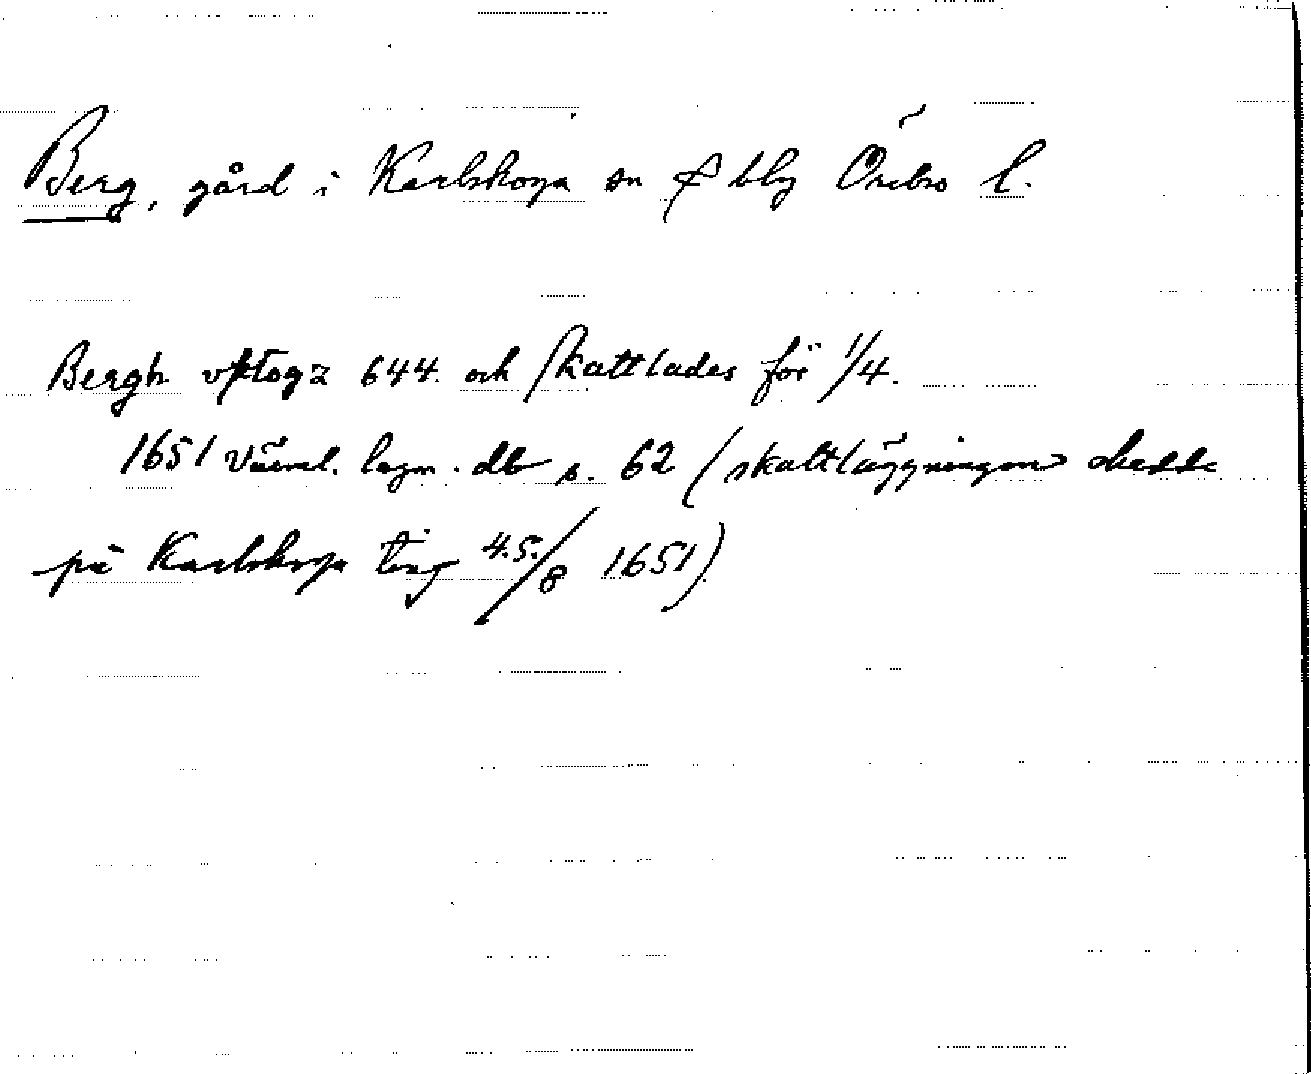 Berg, gård i Karlskoga sn & blg Örebro l.
Bergh vptogz 644. och skattlades för 1/4.
1651 Värml. lagm. db s. 62 (skattläggningen skedde
på Karlskoga ting 4.5./8 1651)